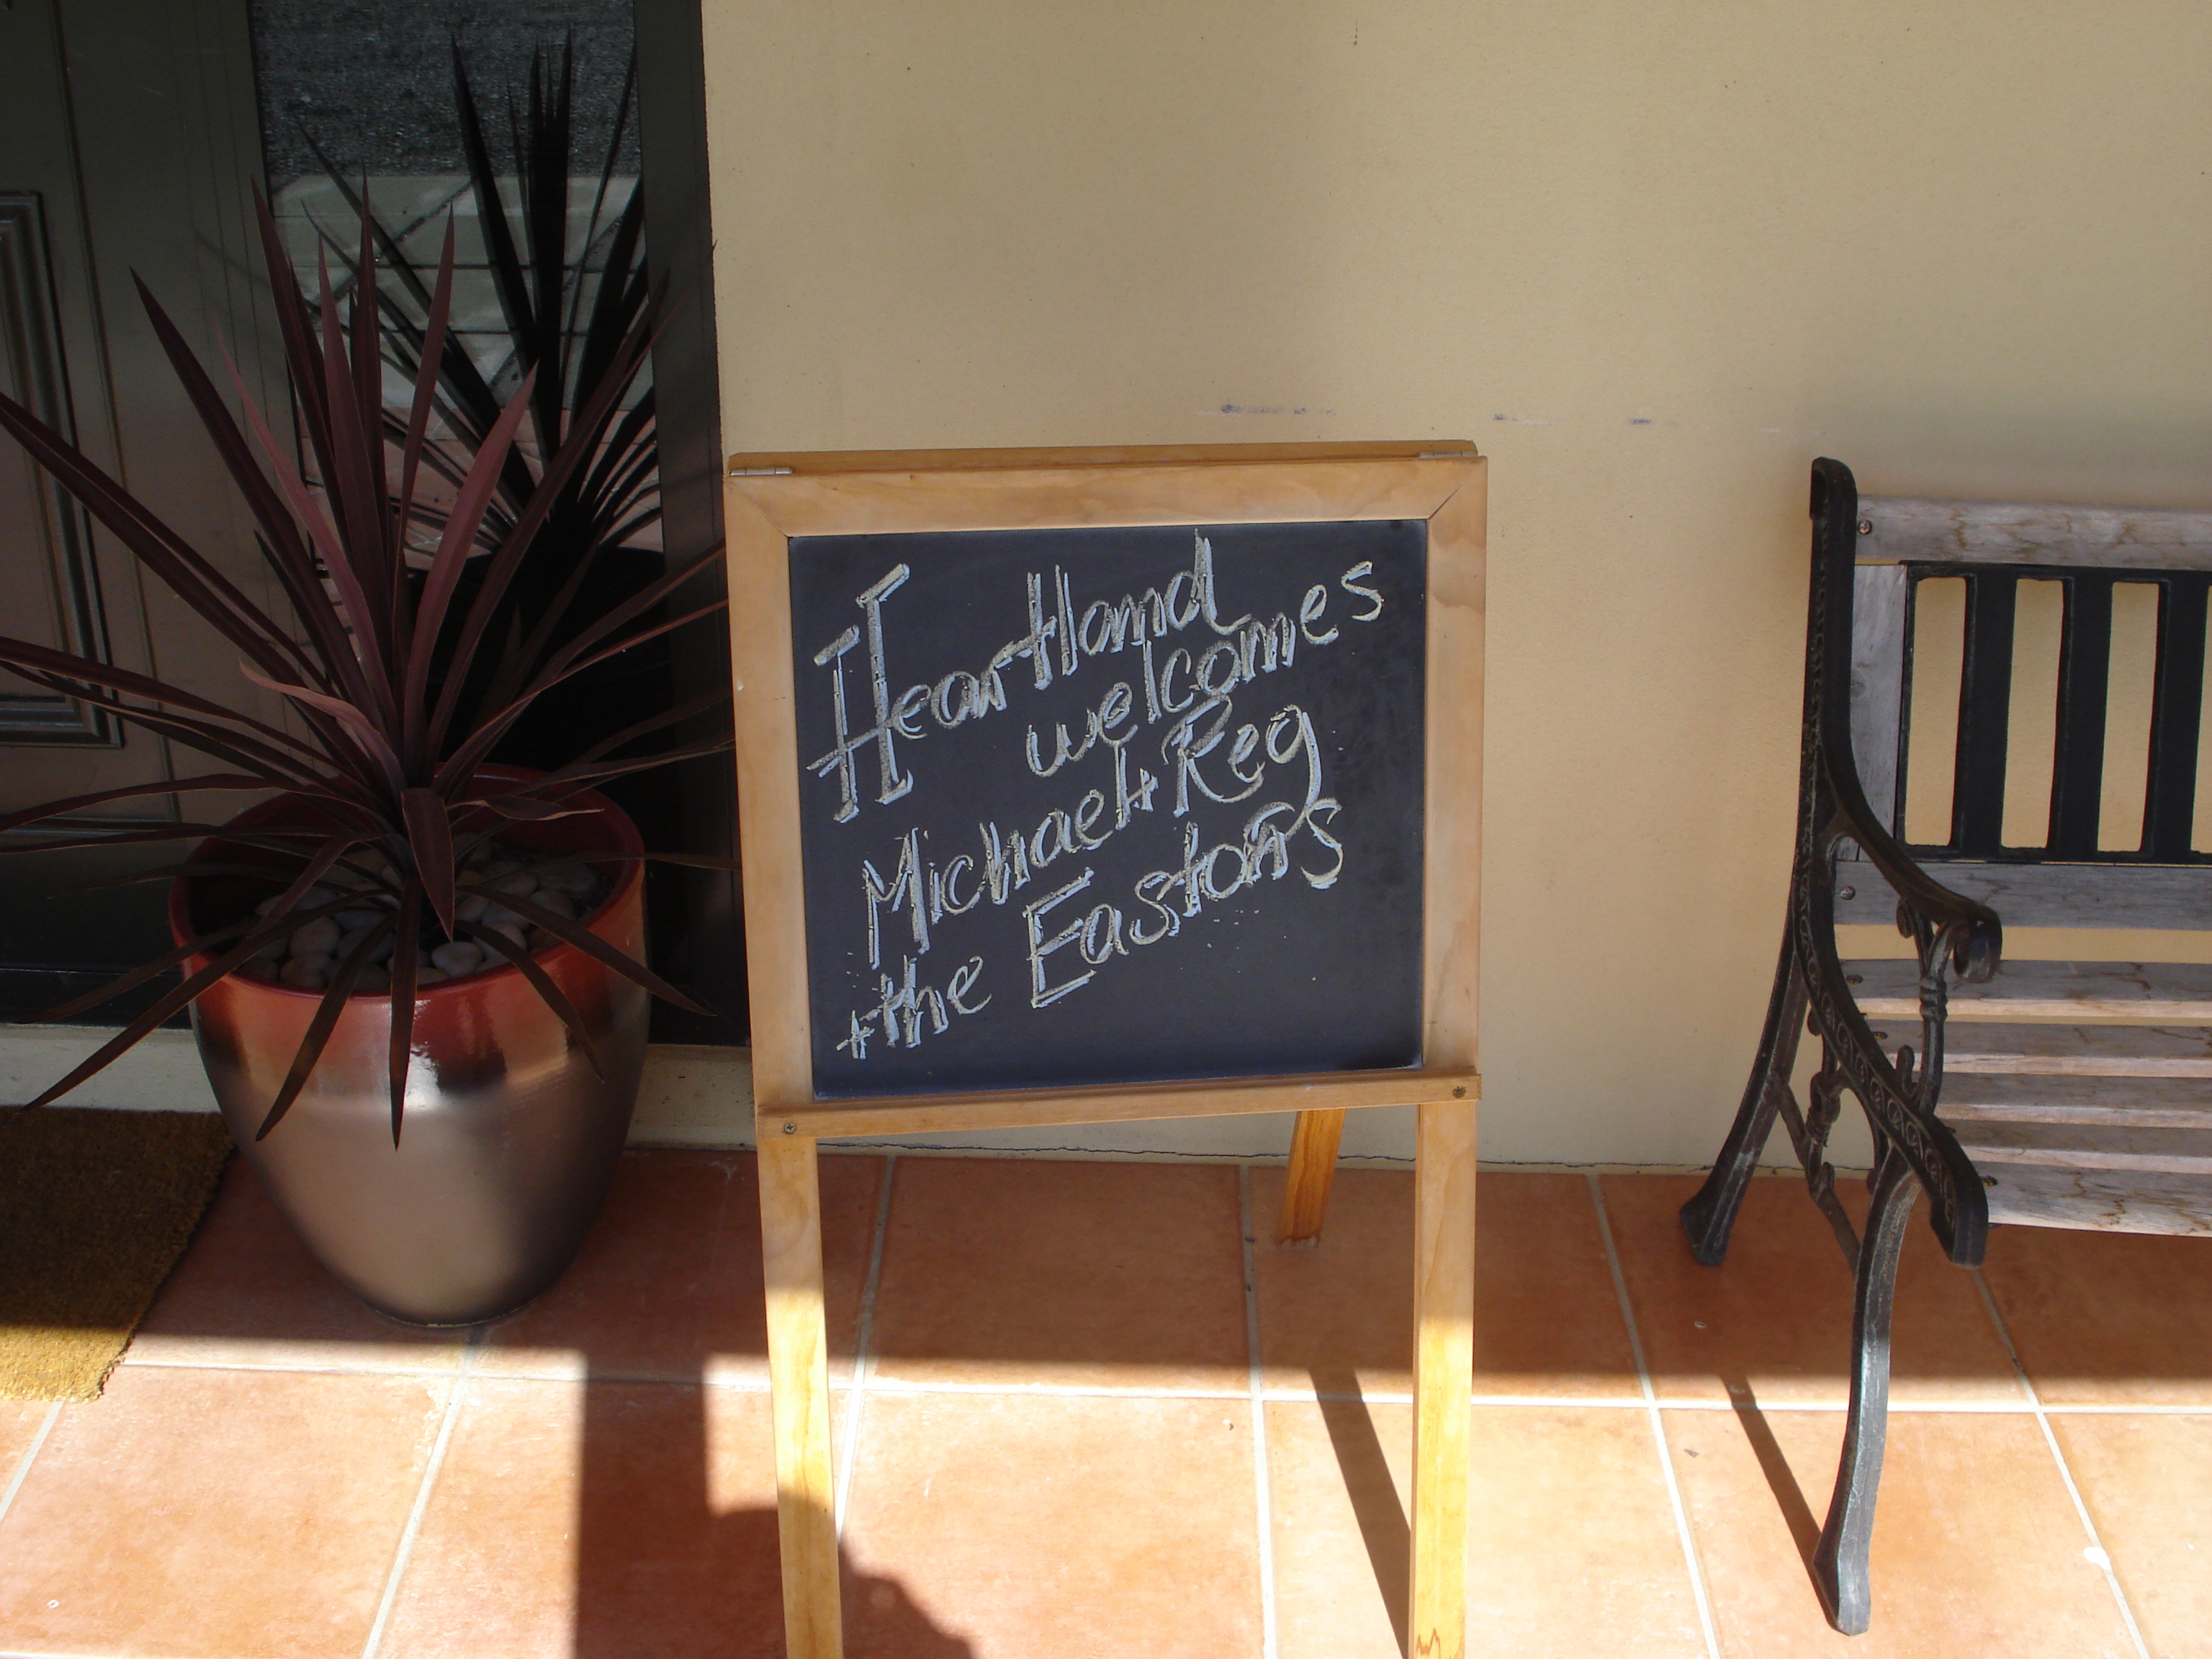 Heartland
welcomes
Michael + Reg
+ the Eastons